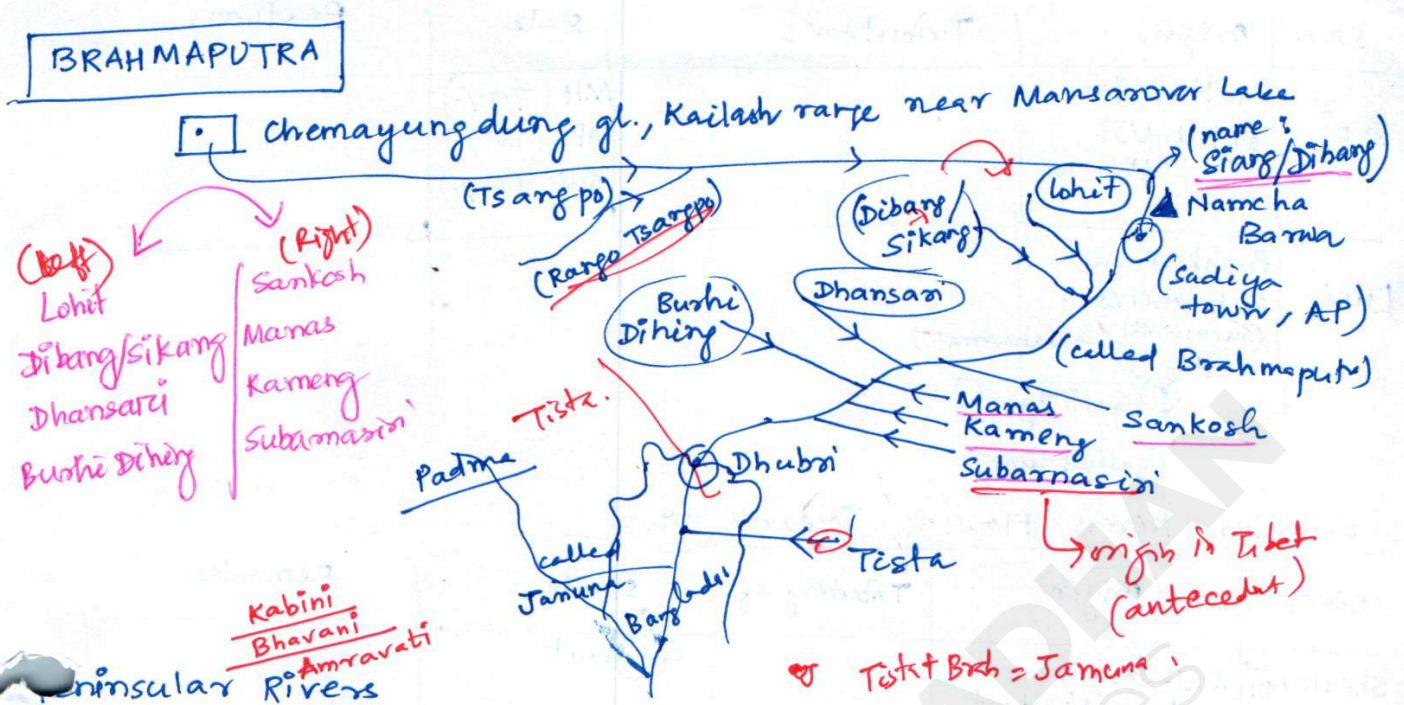 BRAHMAPUTRA
Chemayungdung gl., Kailash range near Mansarover Lake
(name :
Siang/Dibang)
Namcha
Barwa
(Tsangpo)
(Rango Tsangpo)
(Dibang/
Sikang)
Lohit
(Sadiya
town, AP)
(called Brahmaputr)
(Left)
Lohit
Dibang/Sikang
Dhansari
Burhi Dihing
(Right)
Sankosh
Manas
Kameng
Subarnasiri
Burhi
Dihing
Dhansari
Manas
Kameng
Subarnasiri
Sankosh
origin in Tibet
(antecedent)
Tista.
Padma
Dhubri
Tista
called
Jamuna
Bangladesh
Kabini
Bhavani
Amravati
Rivers
Tista + Brah = Jamuna
ADHAN